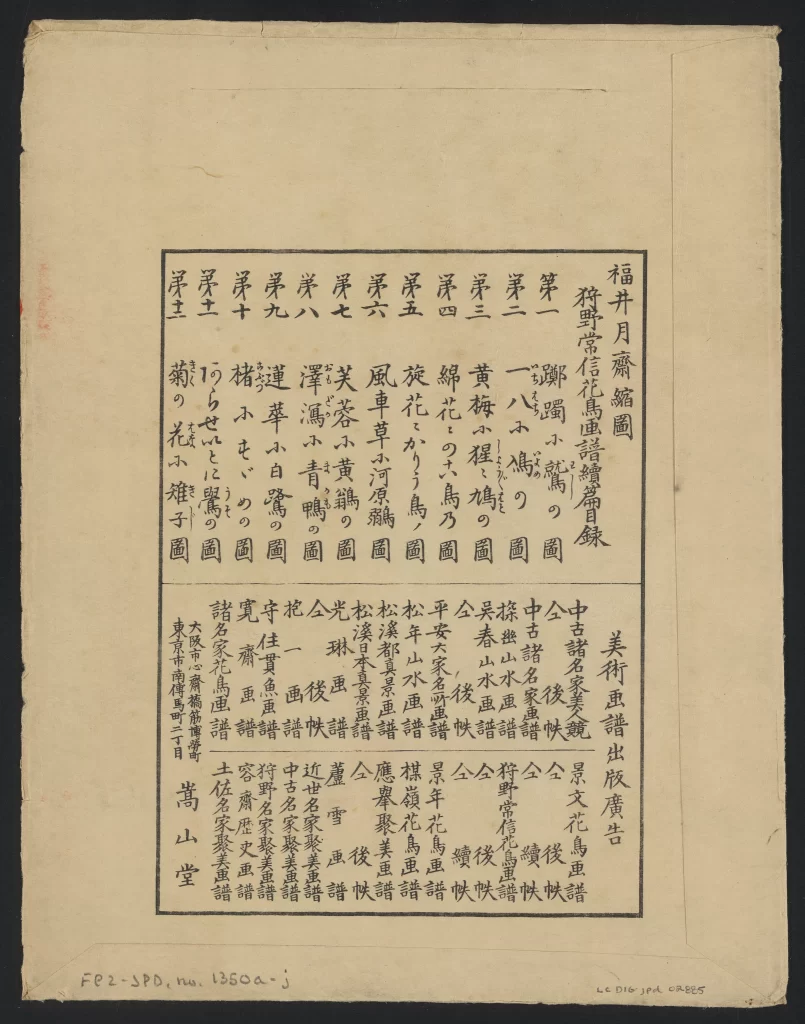 福井月齋縮圖
狩野常信花鳥画譜續篇目録
第一 躑躅尓鷲の圖
第二 一八尓鳰の圖
第三 黄梅尓猩〻鳩の圖
第四 綿花〻の古鳥乃圖
第五 旋花〻かりう鳥ノ圖
第六 風車草尓河原鶸圖
第七 芙蓉尓黄鶲の圖
第八 澤瀉尓青鴨の圖
第九 蓮華尓白鷺の圖
第十 楮尓すゞめの圖
第十一 あらせいとに鷽の圖
第十二 菊の花尓雉子圖
美術画譜出版廣告
中古諸名家美人競
仝 後帙
中古諸名家画譜
探幽山水画譜
呉春山水画譜
仝 後帙
平安大家名所画譜
松年山水画譜
松溪都真景画譜
松溪日本真景画譜
仝 後帙
光琳画譜
抱一画譜
守住貫魚画譜
寛齋画譜
諸名家花鳥画譜
景文花鳥画譜
仝 後帙
仝 續帙
狩野常信花鳥画譜
仝 後帙
仝 續帙
景年花鳥画譜
楳嶺花鳥画譜
應擧聚美画譜
仝 後帙
蘆雪画譜
近世名家聚美画譜
中古名家聚美画譜
狩野名家聚美画譜
容齋歴史画譜
土佐名家聚美画譜
大阪市心齋橋筋博勞町
東京市南傳馬町二丁目
嵩山堂
FP2-JPD, no. 1350a-j
LC DIG jpd 02885